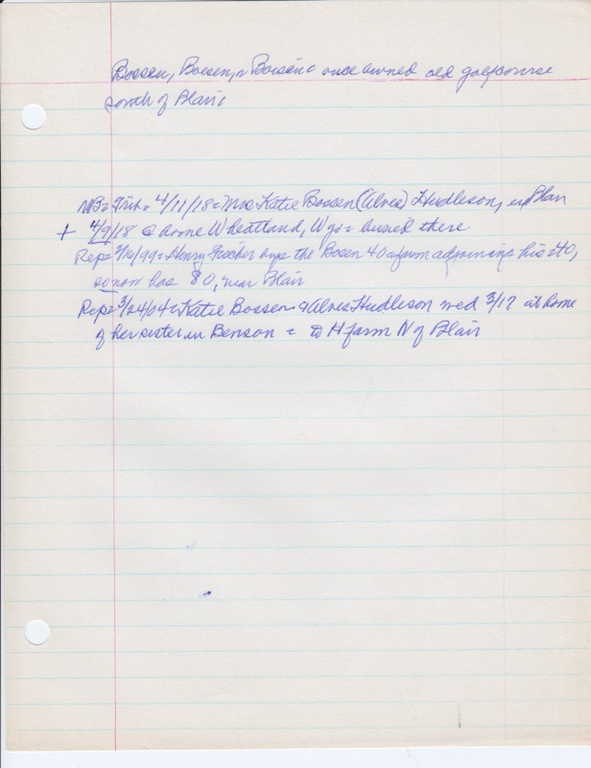 Bossen, Boesen, or Boisen = once owned old golfcourse
south of Blair
WB = Trib = 4/11/18 = Mrs Katie Bossen (Alves) Hudleson, ex Blair
+ 4/9/18 @ home Wheatland, Wyo = buried there
Rep = /99 = Henry buys the Bosen 40 a farm adjoining his 40,
so now has 80, near Blair
Rep = 3/24/04 = Katie Bossen & Alves Hudleson wed 3/17 at home
of her sister in Benson = to H farm N of Blair